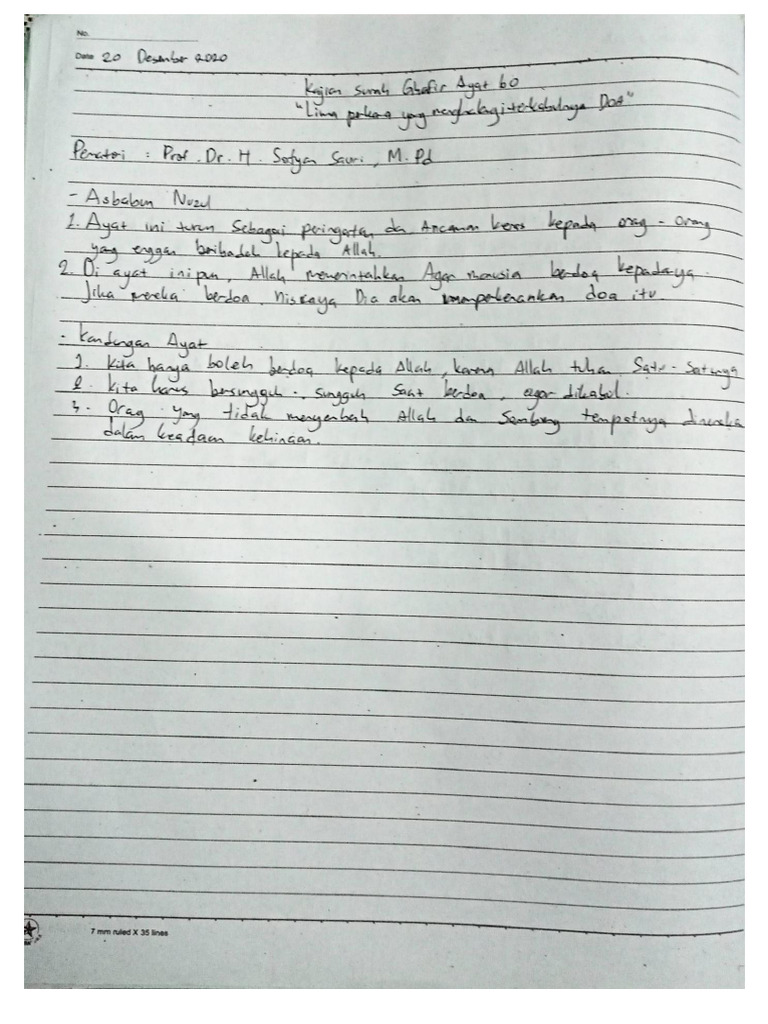 No.
Date 20 Desember 2020
Kajian Surah Ghafir Ayat 60
"Lima perkara yang menghalangi terkabulnya Doa"
Pemateri : Prof. Dr. H. Sofyan Sauri, M.Pd
- Asbabun Nuzul
1. Ayat ini turun Sebagai peringatan dan Ancaman keras kepada orang - orang
yang enggan beribadah kepada Allah.
2. Di ayat inipun, Allah memerintahkan Agar manusia berdoa kepadaNya.
Jika mereka berdoa, Niscaya Dia akan memperkenankan doa itu
- Kandungan Ayat
1. Kita hanya boleh berdoa kepada Allah, karena Allah tuhan Satu - Satunya
2. Kita harus bersungguh - sungguh Saat berdoa, agar dikabul.
3. Orang yang tidak menyembah Allah dan Sombong tempatnya dineraka
dalam keadaan kehinaan.
7 mm ruled X 35 lines